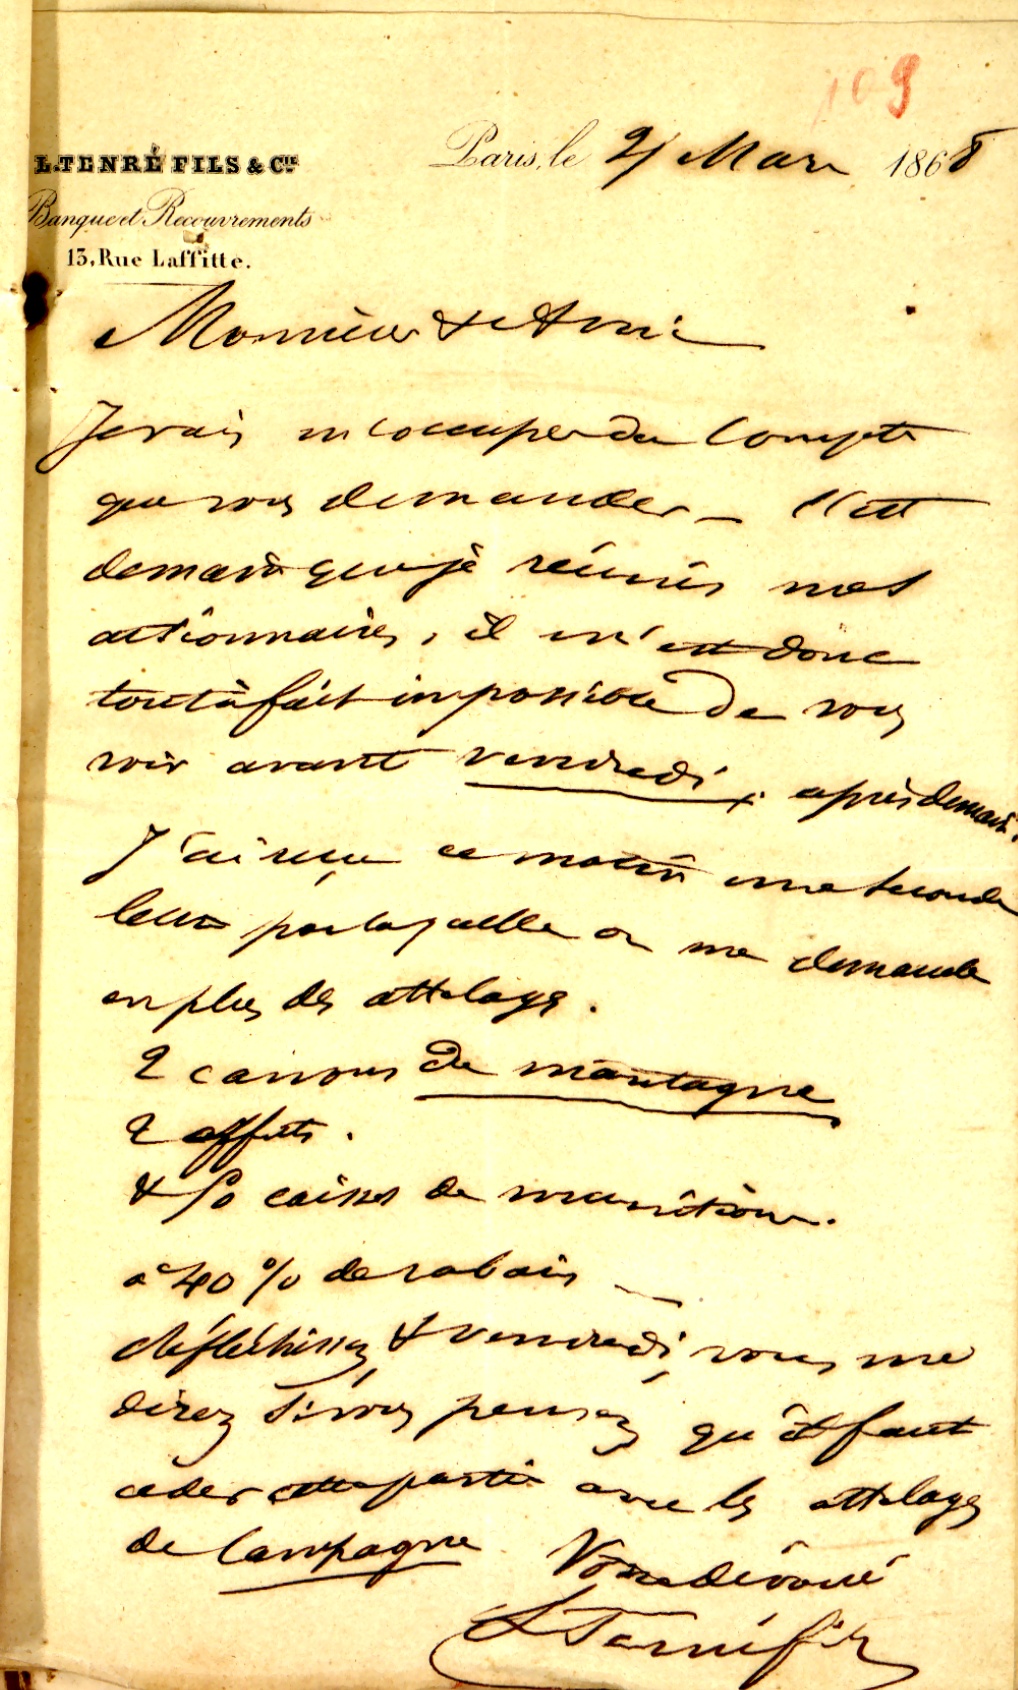 109
L. TENRÉ FILS & Cie
Paris, le 2/ Mars 1868
Banque et Recouvrements
13, Rue Laffitte.
Monsieur & Ami
Je vais m'occuper du Compte
que vous demander _ C'est
demain que je réunis mes
actionnaires, il m'est donc
tout à fait impossible de vous
voir avant vendredi, après demain.
J'ai reçu ce matin une seconde
lettre par laquelle on me demande
en plus des attelages.
2 canons de montagne
2 affuts.
& 80 caisses de munitions.
à 40 % de rabais _
Réfléchissez & vendredi, vous me
direz si vous pensez qu'il faut
céder cette partie avec les attelages
de Campagne
Votre dévoué
L Tenré fils